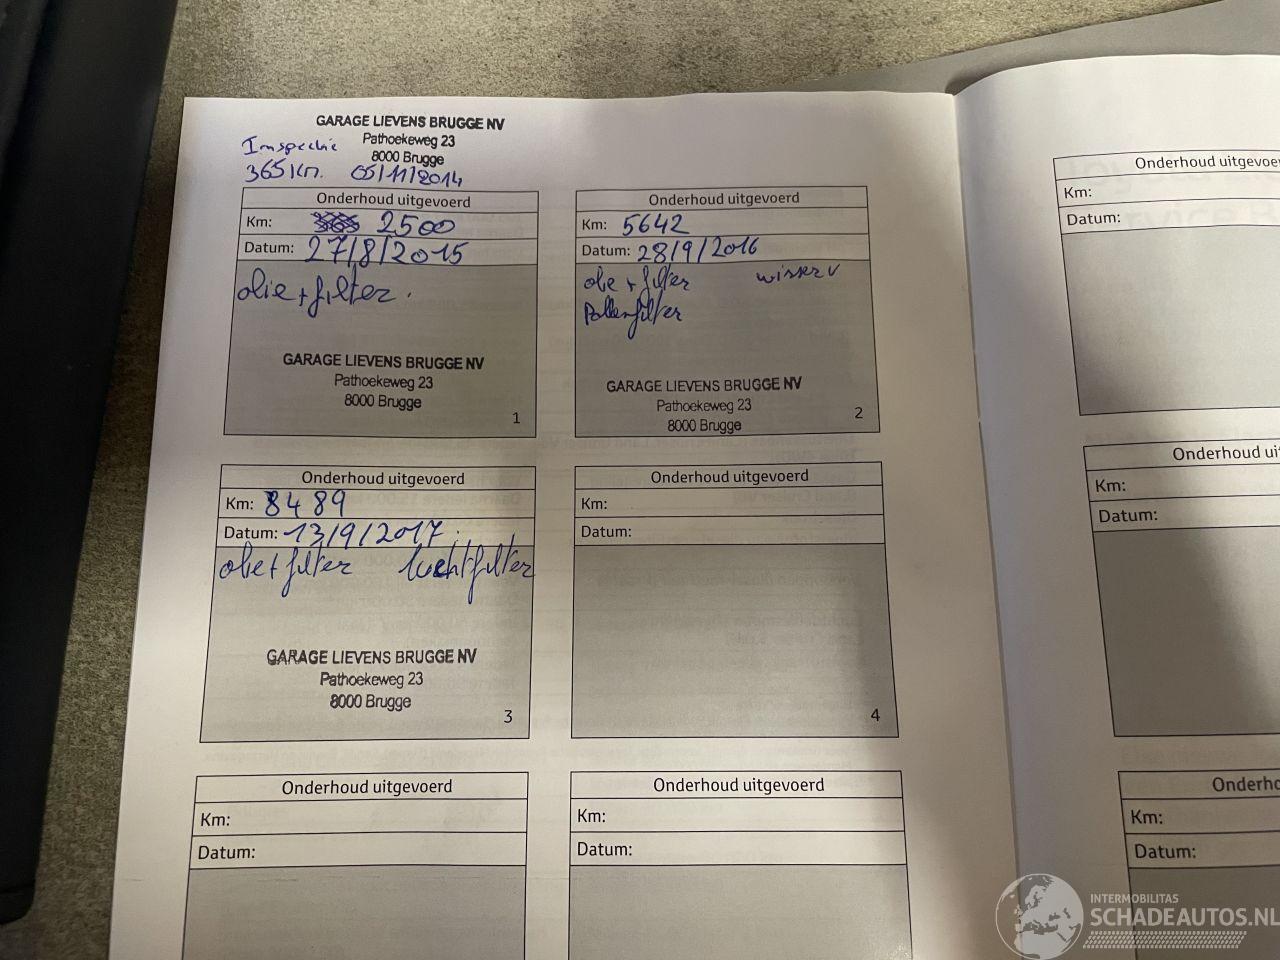 GARAGE LIEVENS BRUGGE NV
Pathoekeweg 23
8000 Brugge
Inspectie
365 Km. 05/11/2014
Onderhoud uitgevoerd
Km: 2500
Datum: 27/8/2015
olie + filter.
GARAGE LIEVENS BRUGGE NV
Pathoekeweg 23
8000 Brugge
1
Onderhoud uitgevoerd
Km: 5642
Datum: 28/9/2016
olie + filter wisser v
Pollenfilter
GARAGE LIEVENS BRUGGE NV
Pathoekeweg 23
8000 Brugge
2
Onderhoud uitgevoerd
Km: 8489
Datum: 13/9/2017.
olie + filter luchtfilter
GARAGE LIEVENS BRUGGE NV
Pathoekeweg 23
8000 Brugge
3
Onderhoud uitgevoerd
Km:
Datum:
4
Onderhoud uitgevoerd
Km:
Datum:
Onderhoud uitgevoerd
Km:
Datum:
Onderhoud uitgevoe
Km:
Datum:
Onderhoud ui
Km:
Datum:
Onderho
Km:
Datum:
INTERMOBILITAS
SCHADEAUTOS.NL